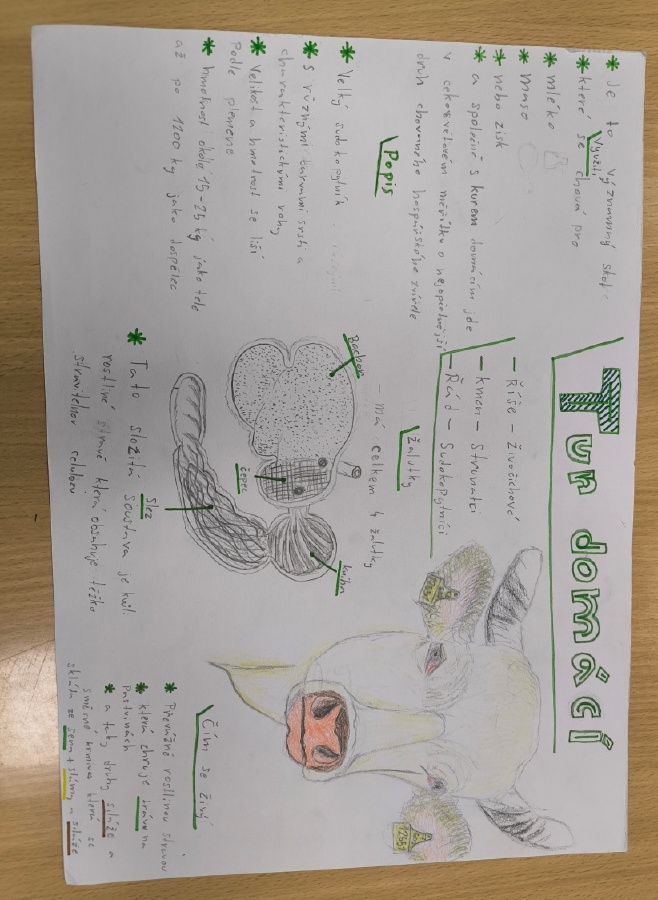 Tur domácí
– Říše – Živočichové
– kmen – Strunatci
– Řád – Sudokopytníci
Využití
* Je to významný skot
* které se chová pro
* mléko
* maso
* nebo zisk
* a společně s kurem domácím jde
v celosvětovém měřítku o nejpočetnější
druh chovaného hospodářského zvířete
Popis
* Velký sudokopytník
* s různými barvami srsti a
charakteristickými rohy
* Velikost a hmotnost se liší
Podle plemene
* hmotnost okolo 15-25 kg jako tele
až po 1200 kg jako dospělec
Žalutky
– má celkem 4 žalutky
Bachor
čepec
kniha
Slez
* Tato složitá soustava je kvůl.
rostliné stravě která obsahuje těžko
stravitelnov celulozu
Čím se živý
* Převážně rostlinou stravou
* která zhruje trávu na
Pastvinách
* a taky druhy siláže a
směsné krmiva která se
skládá ze sena + slámy a siláže